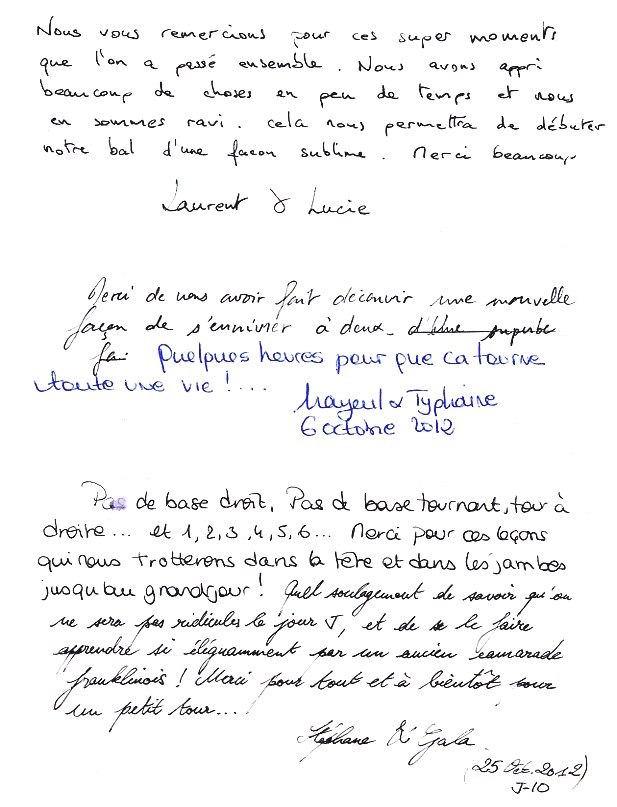 Nous vous remercions pour ces super moments
que l'on a passé ensemble. Nous avons appri
beaucoup de choses en peu de temps et nous
en sommes ravi. cela nous permettra de débuter
notre bal d'une facon sublime. Merci beaucoup
Laurent & Lucie
Merci de nous avoir fait découvrir une nouvelle
façon de s'ennivrer à deux.
Quelques heures pour que ca tourne
toute une vie !...
Mayeul & Typhaine
6 octobre 2012
Pas de base droit, Pas de base tournant, tour à
droite... et 1, 2, 3, 4, 5, 6... Merci pour ces leçons
qui nous trotterons dans la tête et dans les jambes
jusqu'au grand jour ! Quel soulagement de savoir qu'on
ne sera pas ridicules le jour J, et de se le faire
apprendre si élégamment par un ancien camarade
franklinois ! Merci pour tout et à bientôt pour
un petit tour...
Stéphane & Gala
(25 Oct. 2012)
J-10